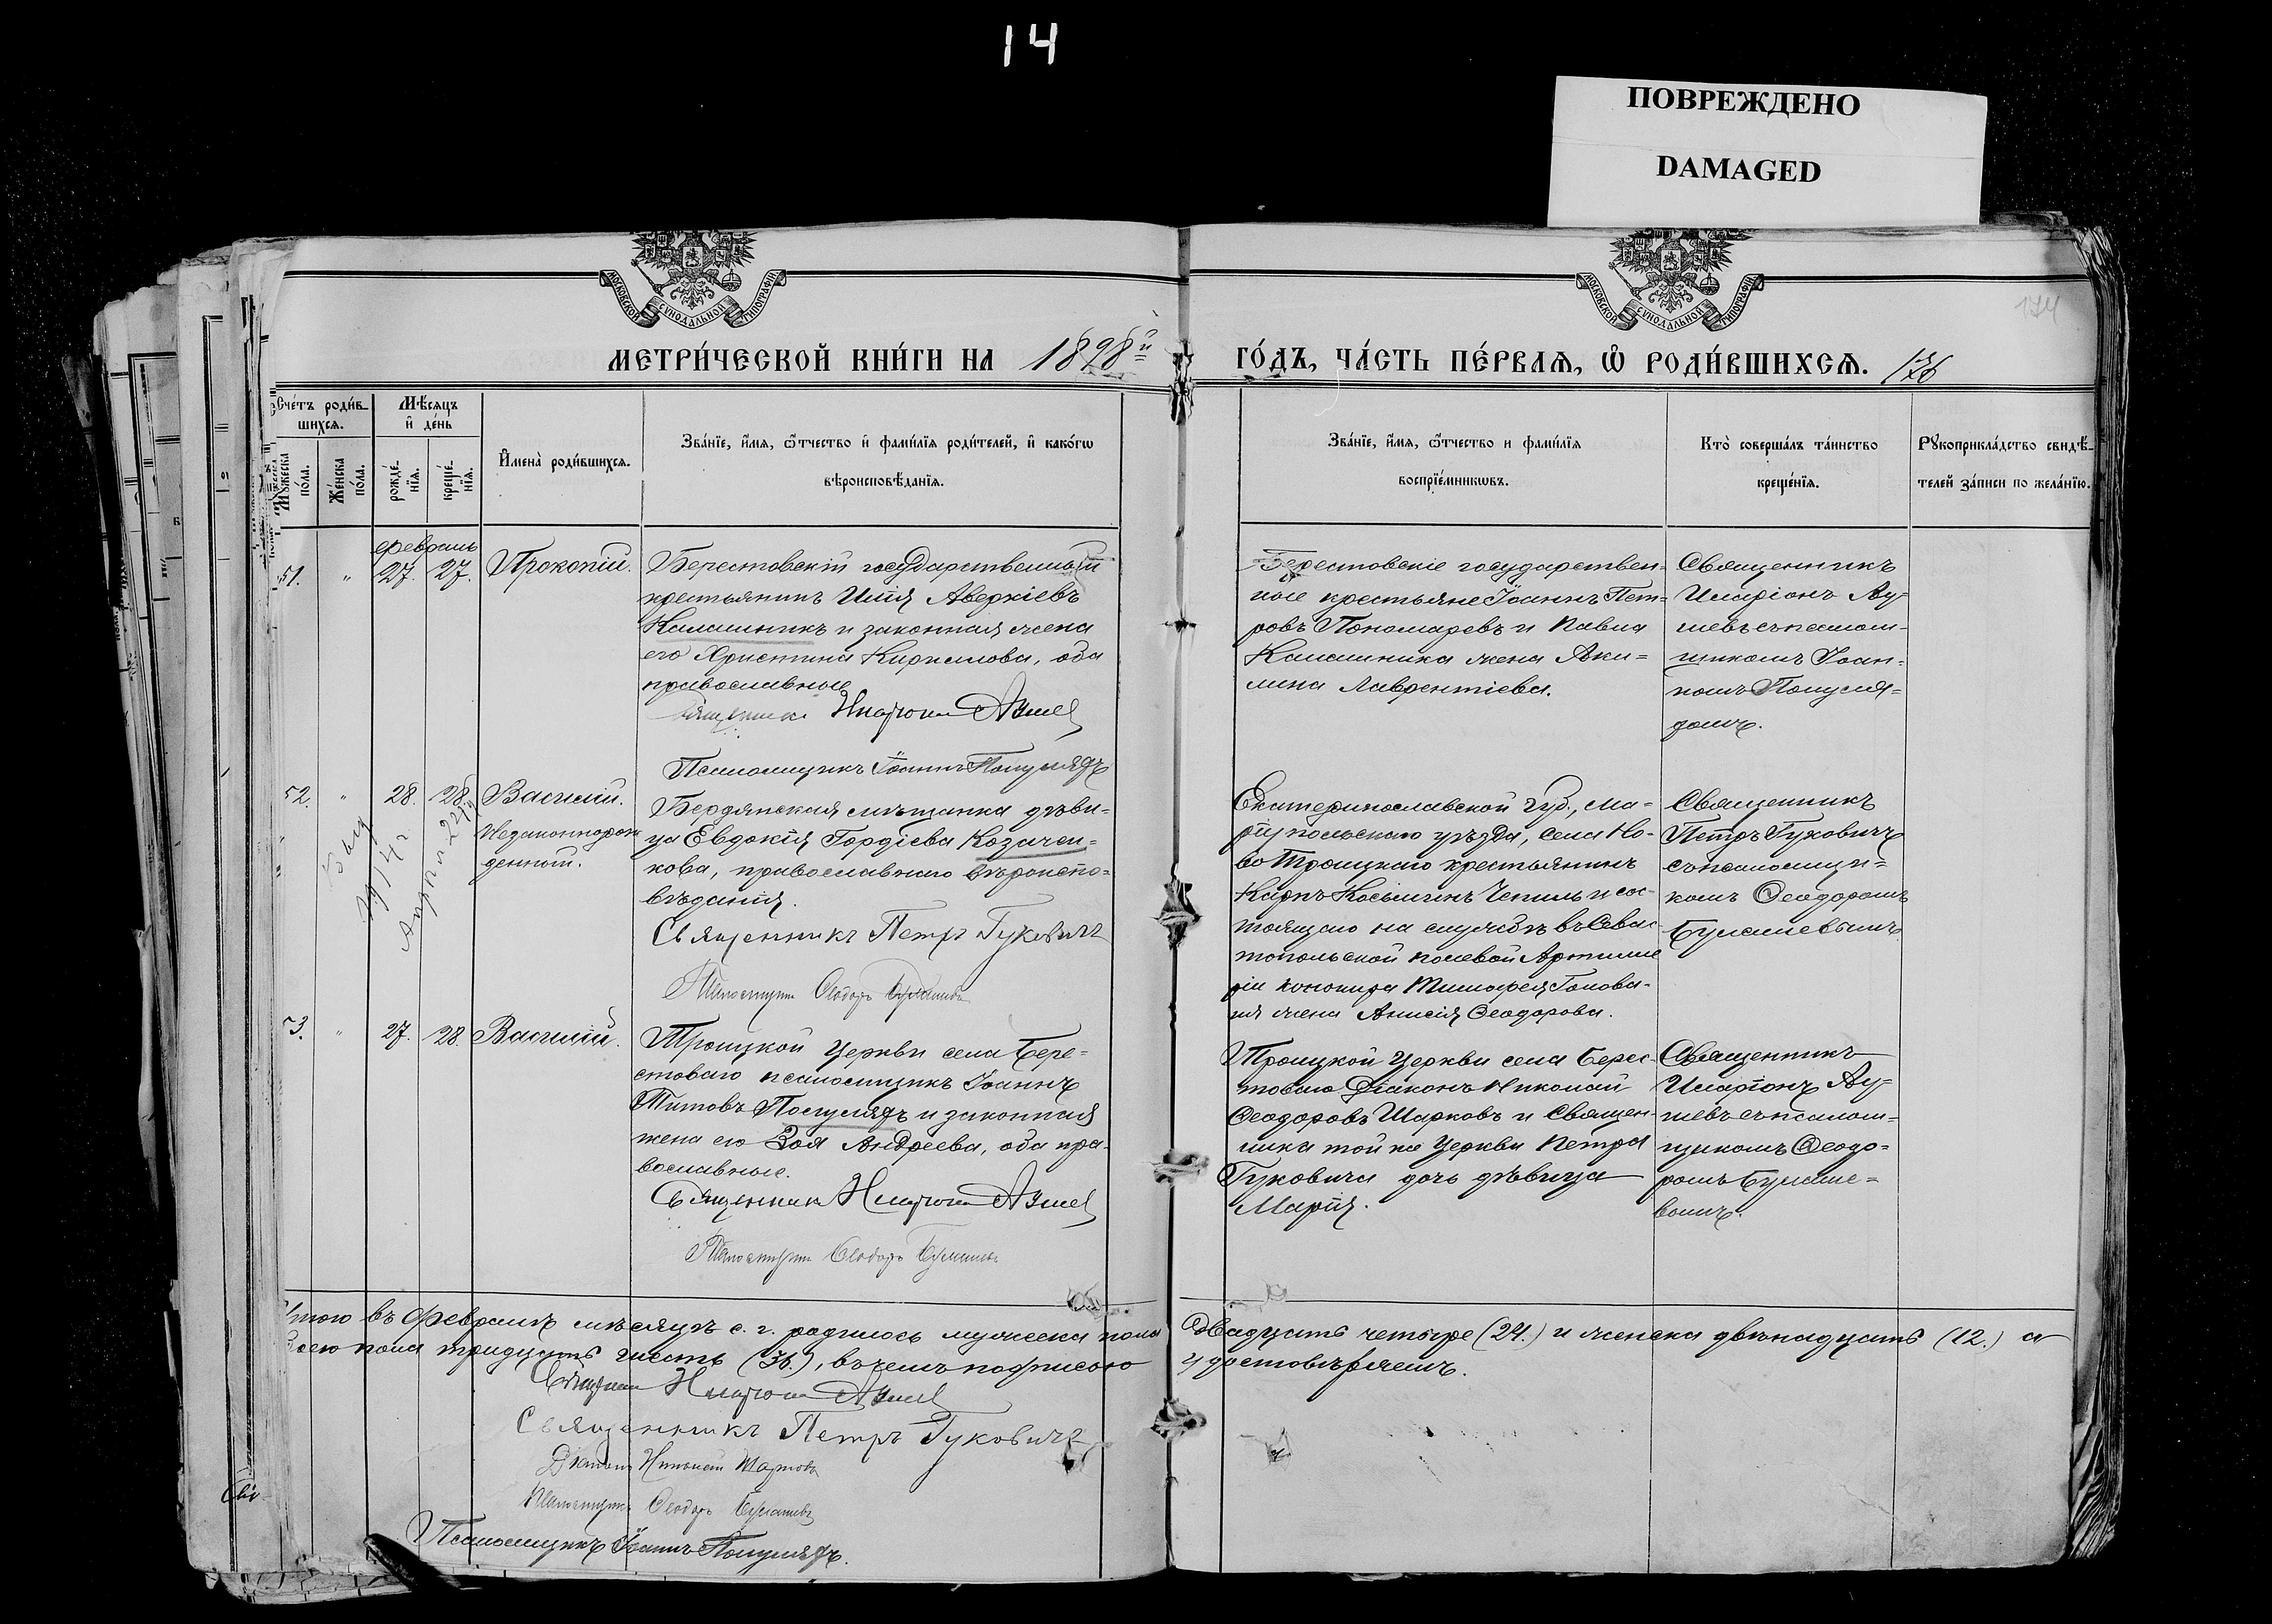 14
ПОВРЕЖДЕНО
DAMAGED
МОСКОВСКОЙ СѴНОДАЛЬНОЙ ТИПОГРАФІИ
МОСКОВСКОЙ СѴНОДАЛЬНОЙ ТИПОГРАФІИ
174
МЕТРИ́ЧЕСКОЙ КНИ́ГИ НА 1898й
ГО́ДЪ, ЧА́СТЬ ПЕ́РВАѦ, Ѽ РОДИ́ВШИХСѦ. 176
Сче́тъ роди́в-
шихсѧ.
Мѣ́сѧцъ
и҆ де́нь
И҆мена̀ роди́вшихсѧ.
Зва́нїе, и҆́мѧ, ѻ҆́тчество и҆ фами́лїѧ роди́телей, и҆ како́гѡ
вѣроисповѣ́данїѧ.
Му́жеска
по́ла.
Же́нска
по́ла.
рожде́-
нїѧ.
креще́-
нїѧ.
Зва́нїе, и҆́мѧ, ѻ҆́тчество и фами́лїѧ
воспрїе́мникѡвъ.
Кто̀ соверша́лъ та́инство
креще́нїѧ.
Рꙋкоприкла́дство свидѣ́-
телей за́писи по жела́нїю.
февраль
51. " 27. 27. Прокопій.
Берестовскій государственный
крестьянинъ Илія Аверкіевъ
Калашникъ и законная жена
его Христина Кириллова, оба
православные
Священникъ Иларіонъ Ауш
Псаломщикъ Іоаннъ Популяхъ
Берестовскіе государствен-
ные крестьяне Іоаннъ Пет-
ровъ Пономаревъ и Павла
Калашника жена Аки-
лина Лаврентіева.
Священникъ
Иларіонъ Ау-
шевъ съ псалом-
щикомъ Іоан-
номъ
домъ.
52. " 28. 28. Василій.
Незаконнорож
денный.
1914 г
Апрѣл
Бердянская мѣщанка дѣви-
ца Евдокія Гордіева Козачен-
кова, православнаго вѣроиспо-
вѣданія.
Священникъ Петръ Гуковичъ
Псаломщикъ Ѳеодоръ
Екатеринославской губ., Ма-
ріупольскаго уѣзда, села Но-
во Троицкаго крестьянинъ
Карпъ Косьминъ и сос-
тоящаго на службѣ въ Севас-
топольской полевой Артилле
ріи канонира Тимофея Голова-
ня жена Анисія Ѳеодорова.
Священникъ
Петръ Гуковичъ
съ псаломщи-
комъ Ѳеодоромъ
53. " 27. 28. Василій.
Троицкой Церкви села Бере-
стоваго псаломщикъ Іоаннъ
Титовъ и законная
жена его Зоя Андреева, оба пра-
вославные.
Священникъ Иларіонъ
Псаломщикъ Ѳеодоръ
Троицкой Церкви села Берес-
товаго Діаконъ Николай
Ѳеодоровъ Шарковъ и Священ-
ника той же Церкви Петра
Гуковича дочь дѣвица
Марія.
Священникъ
Иларіонъ Ау-
шевъ съ псалом-
щикомъ Ѳеодо-
ромъ
вымъ.
Итого въ Февралѣ мѣсяцѣ с. г. родилось мужеска пола двадцать четыре (24.) и женска двѣнадцать (12.) а
всего пола тридцать шесть (36.), въ чемъ подписью удостовѣряемъ.
Священникъ Иларіонъ
Священникъ Петръ Гуковичъ
Діаконъ Николай Шарковъ
Псаломщикъ Ѳеодоръ
Псаломщикъ Іоаннъ